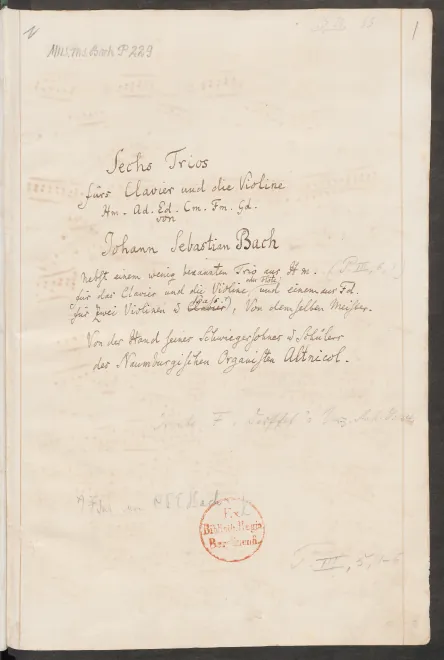 1
Mus. ms. Bach P 229
Sechs Trios
fürs Clavier und die Violine
Hm. Ad. Ed. Cm. Fm. Gd.
von
Johann Sebastian Bach
nebst einem wenig bekannten Trio aus H m.
für das Clavier und die Violine und einem aus Fd.
für zwei Violinen u , Von demselben Meister.
Von der Hand seines Schwiegersohnes u Schülers
des Naumburgischen Organisten Altnicol.
Ex
Biblioth. Regia
Berolinensi.